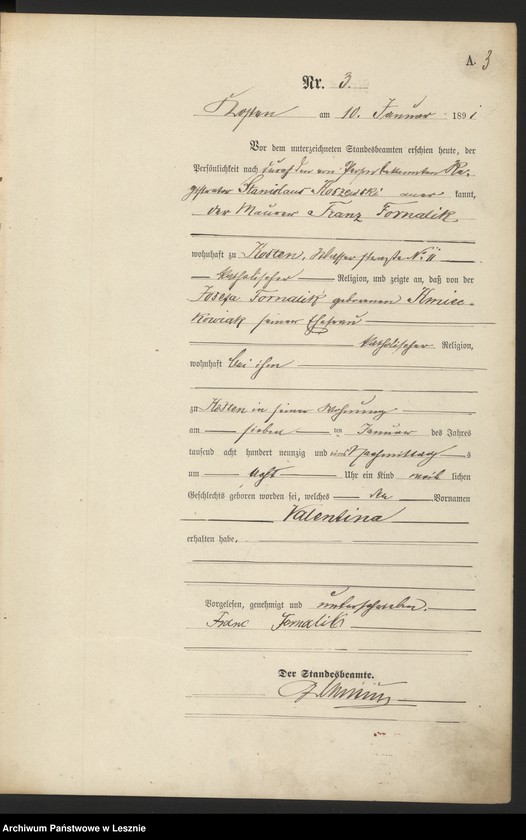 A. 3
Nr. 3.
Kosten am 10. Januar 1891
Vor dem unterzeichneten Standesbeamten erschien heute, der
Persönlichkeit nach durch den von Person bekannten Re-
gistrator Stanislaus Koszewski aner kannt,
der Maurer Franz Fornalik
wohnhaft zu Kosten, Wasserstraße No 11
katholischer Religion, und zeigte an, daß von der
Josefa Fornalik geborenen Kmiec-
kowiak seiner Ehefrau
katholischer Religion,
wohnhaft bei ihm
zu Kosten in seiner Wohnung
am sieben ten Januar des Jahres
tausend acht hundert neunzig und eins Nachmittags
um Acht Uhr ein Kind weib lichen
Geschlechts geboren worden sei, welches den Vornamen
Valentina
erhalten habe,
Vorgelesen, genehmigt und unterschrieben.
Franc Fornalik
Der Standesbeamte.
Archiwum Państwowe w Lesznie